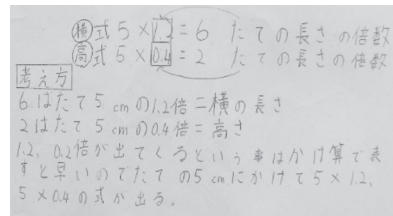 横 式 5×1.2=6 たての長さの倍数
高 式 5×0.4=2 たての長さの倍数
考え方
6はたて5cmの1.2倍=横の長さ
2はたて5cmの0.4倍=高さ
1.2、0.2倍が出てくるという事はかけ算で表
すと早いのでたての5cmにかけて5×1.2、
5×0.4の式が出る。